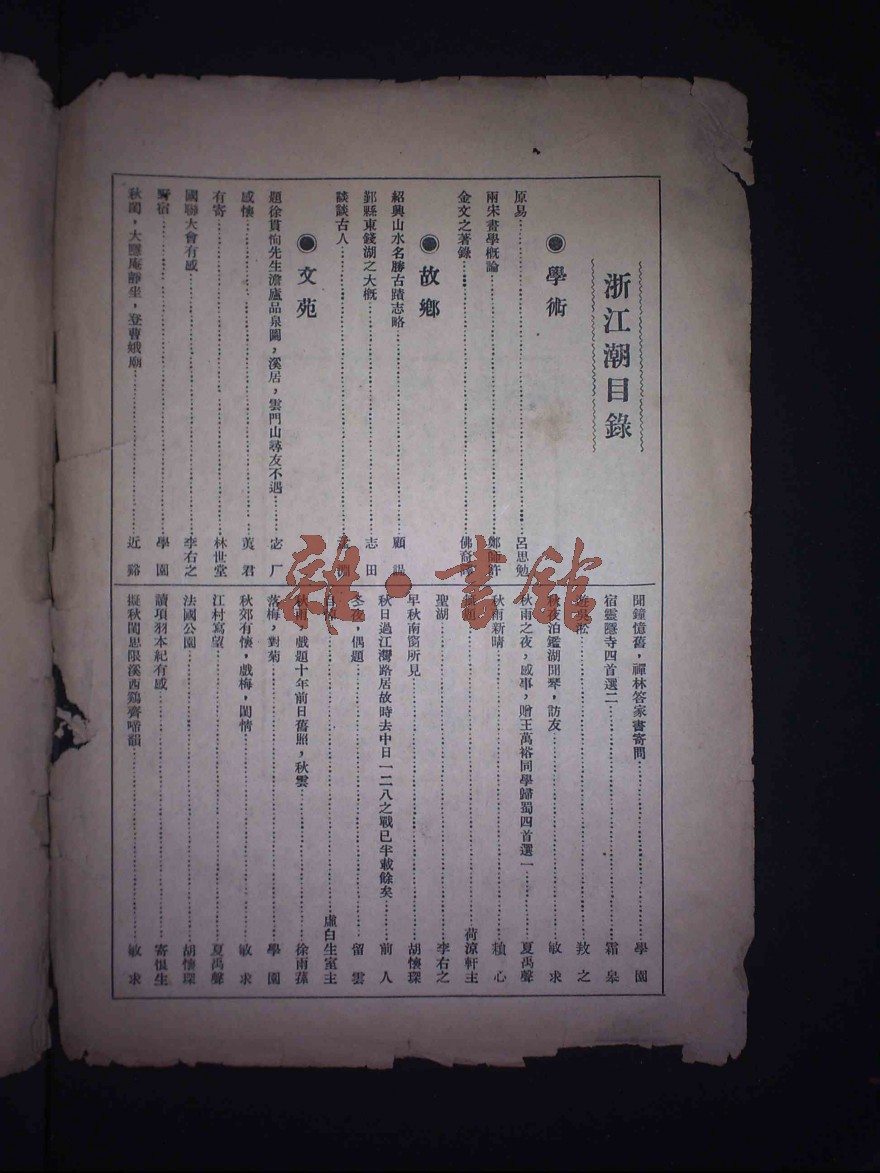 浙江潮目錄
學術
原易……呂思勉
兩宋書學概論……鄭師許
金文之著錄……佛
故鄉
紹興山水名勝古蹟志略……顧
鄞縣東錢湖之大概……志田
談談古人……
文苑
題徐貫恂先生澹廬品泉圖，溪居，雲門山尋友不遇……宓厂
感懷……英君
有寄……林世堂
國聯大會有感……李右之
宿……學園
秋閨，大隱庵靜坐，登曹娥廟……近谿
聞鐘憶舊，禪林答家書寄問……學園
宿靈隱寺四首選二……霜皋
遊吳淞……致之
秋夜泊鑑湖聞琴，訪友……敏求
秋雨之夜，感事，贈王萬裕同學歸蜀四首選一……夏禹聲
秋雨新晴……穎心
題……荷涼軒主
聖湖……李右之
早秋南窗所見……胡懷琛
秋日過江灣路居故時去中日一二八之戰已半載餘矣……前人
冬夜，偶題……留雲
自……虛白生室主
秋雨，戲題十年前日舊照，秋雲……徐雨蓀
落梅，對菊……學園
秋郊有懷，戲梅，閨情……敏求
江村寫望……夏禹聲
法國公園……胡懷琛
讀項羽本紀有感……寄恨生
擬秋閨思限溪西鷄齊啼韻……敏求
雜·書館